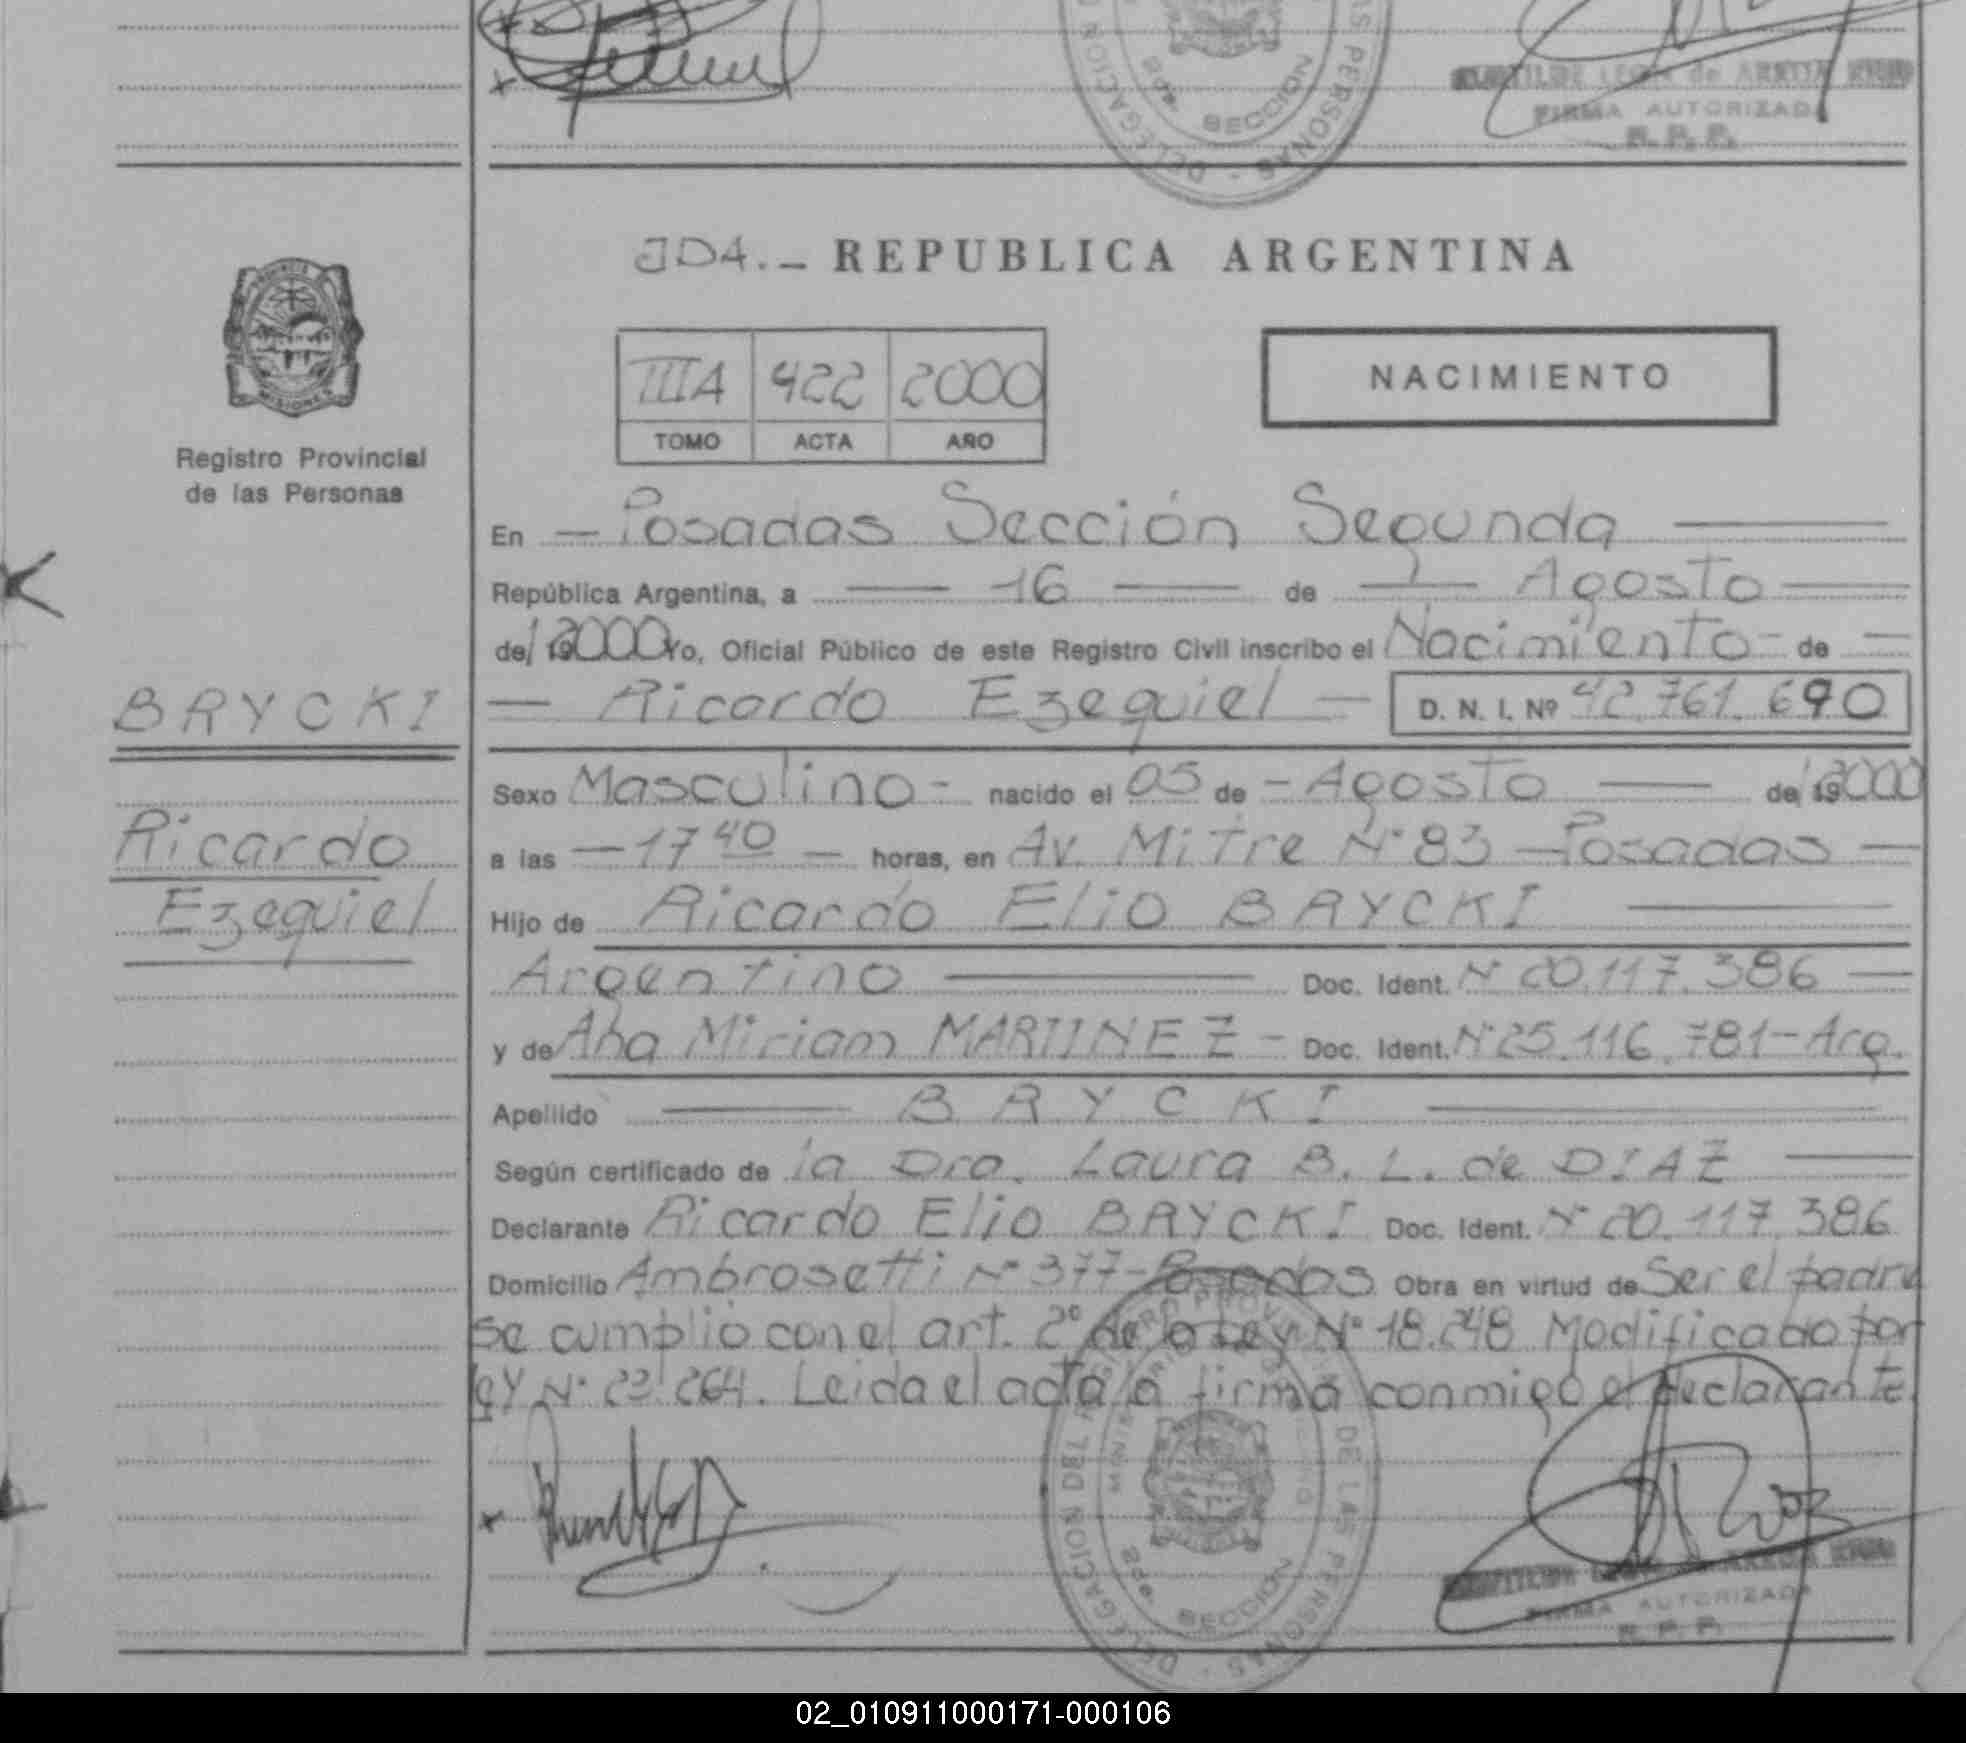 DELEGACION
PERSONAS
2da. SECCION
FIRMA AUTORIZADA
R. P. P.
JDA.- REPUBLICA ARGENTINA
IIIA 422 2000
TOMO ACTA AÑO
NACIMIENTO
MISIONES
Registro Provincial
de las Personas
En - Posadas Sección Segunda
República Argentina, a 16 de Agosto
de/ 192000 Yo, Oficial Público de este Registro Civil inscribo el Nacimiento - de
BRYCKI
- Ricardo Ezequiel - D. N. I. Nº 42.761.690
Sexo Masculino - nacido el 05 de - Agosto de/ 192000
Ricardo
a las - 17 40 - horas, en Av. Mitre Nº 83 - Posadas -
Ezequiel
Hijo de Ricardo Elio BRYCKI
Argentino Doc. Ident. Nº 20.117.386
y de Ana Miriam MARTINEZ - Doc. Ident. Nº 25.116.781 - Arg.
Apellido BRYCKI
Según certificado de la Dra. Laura B. L. de DIAZ
Declarante Ricardo Elio BRYCKI Doc. Ident. Nº 20.117.386
Domicilio Ambrosetti Nº 377 - Posadas Obra en virtud de Ser el padre
se cumplió con el art. 2º de la Ley Nº 18.248 Modificado por
ley Nº 22.264. Leida el acta la firma conmigo el declarante
DELEGACION DEL REGISTRO PROVINCIAL DE LAS PERSONAS
2da. SECCION
FIRMA AUTORIZADA
R. P. P.
02_010911000171-000106